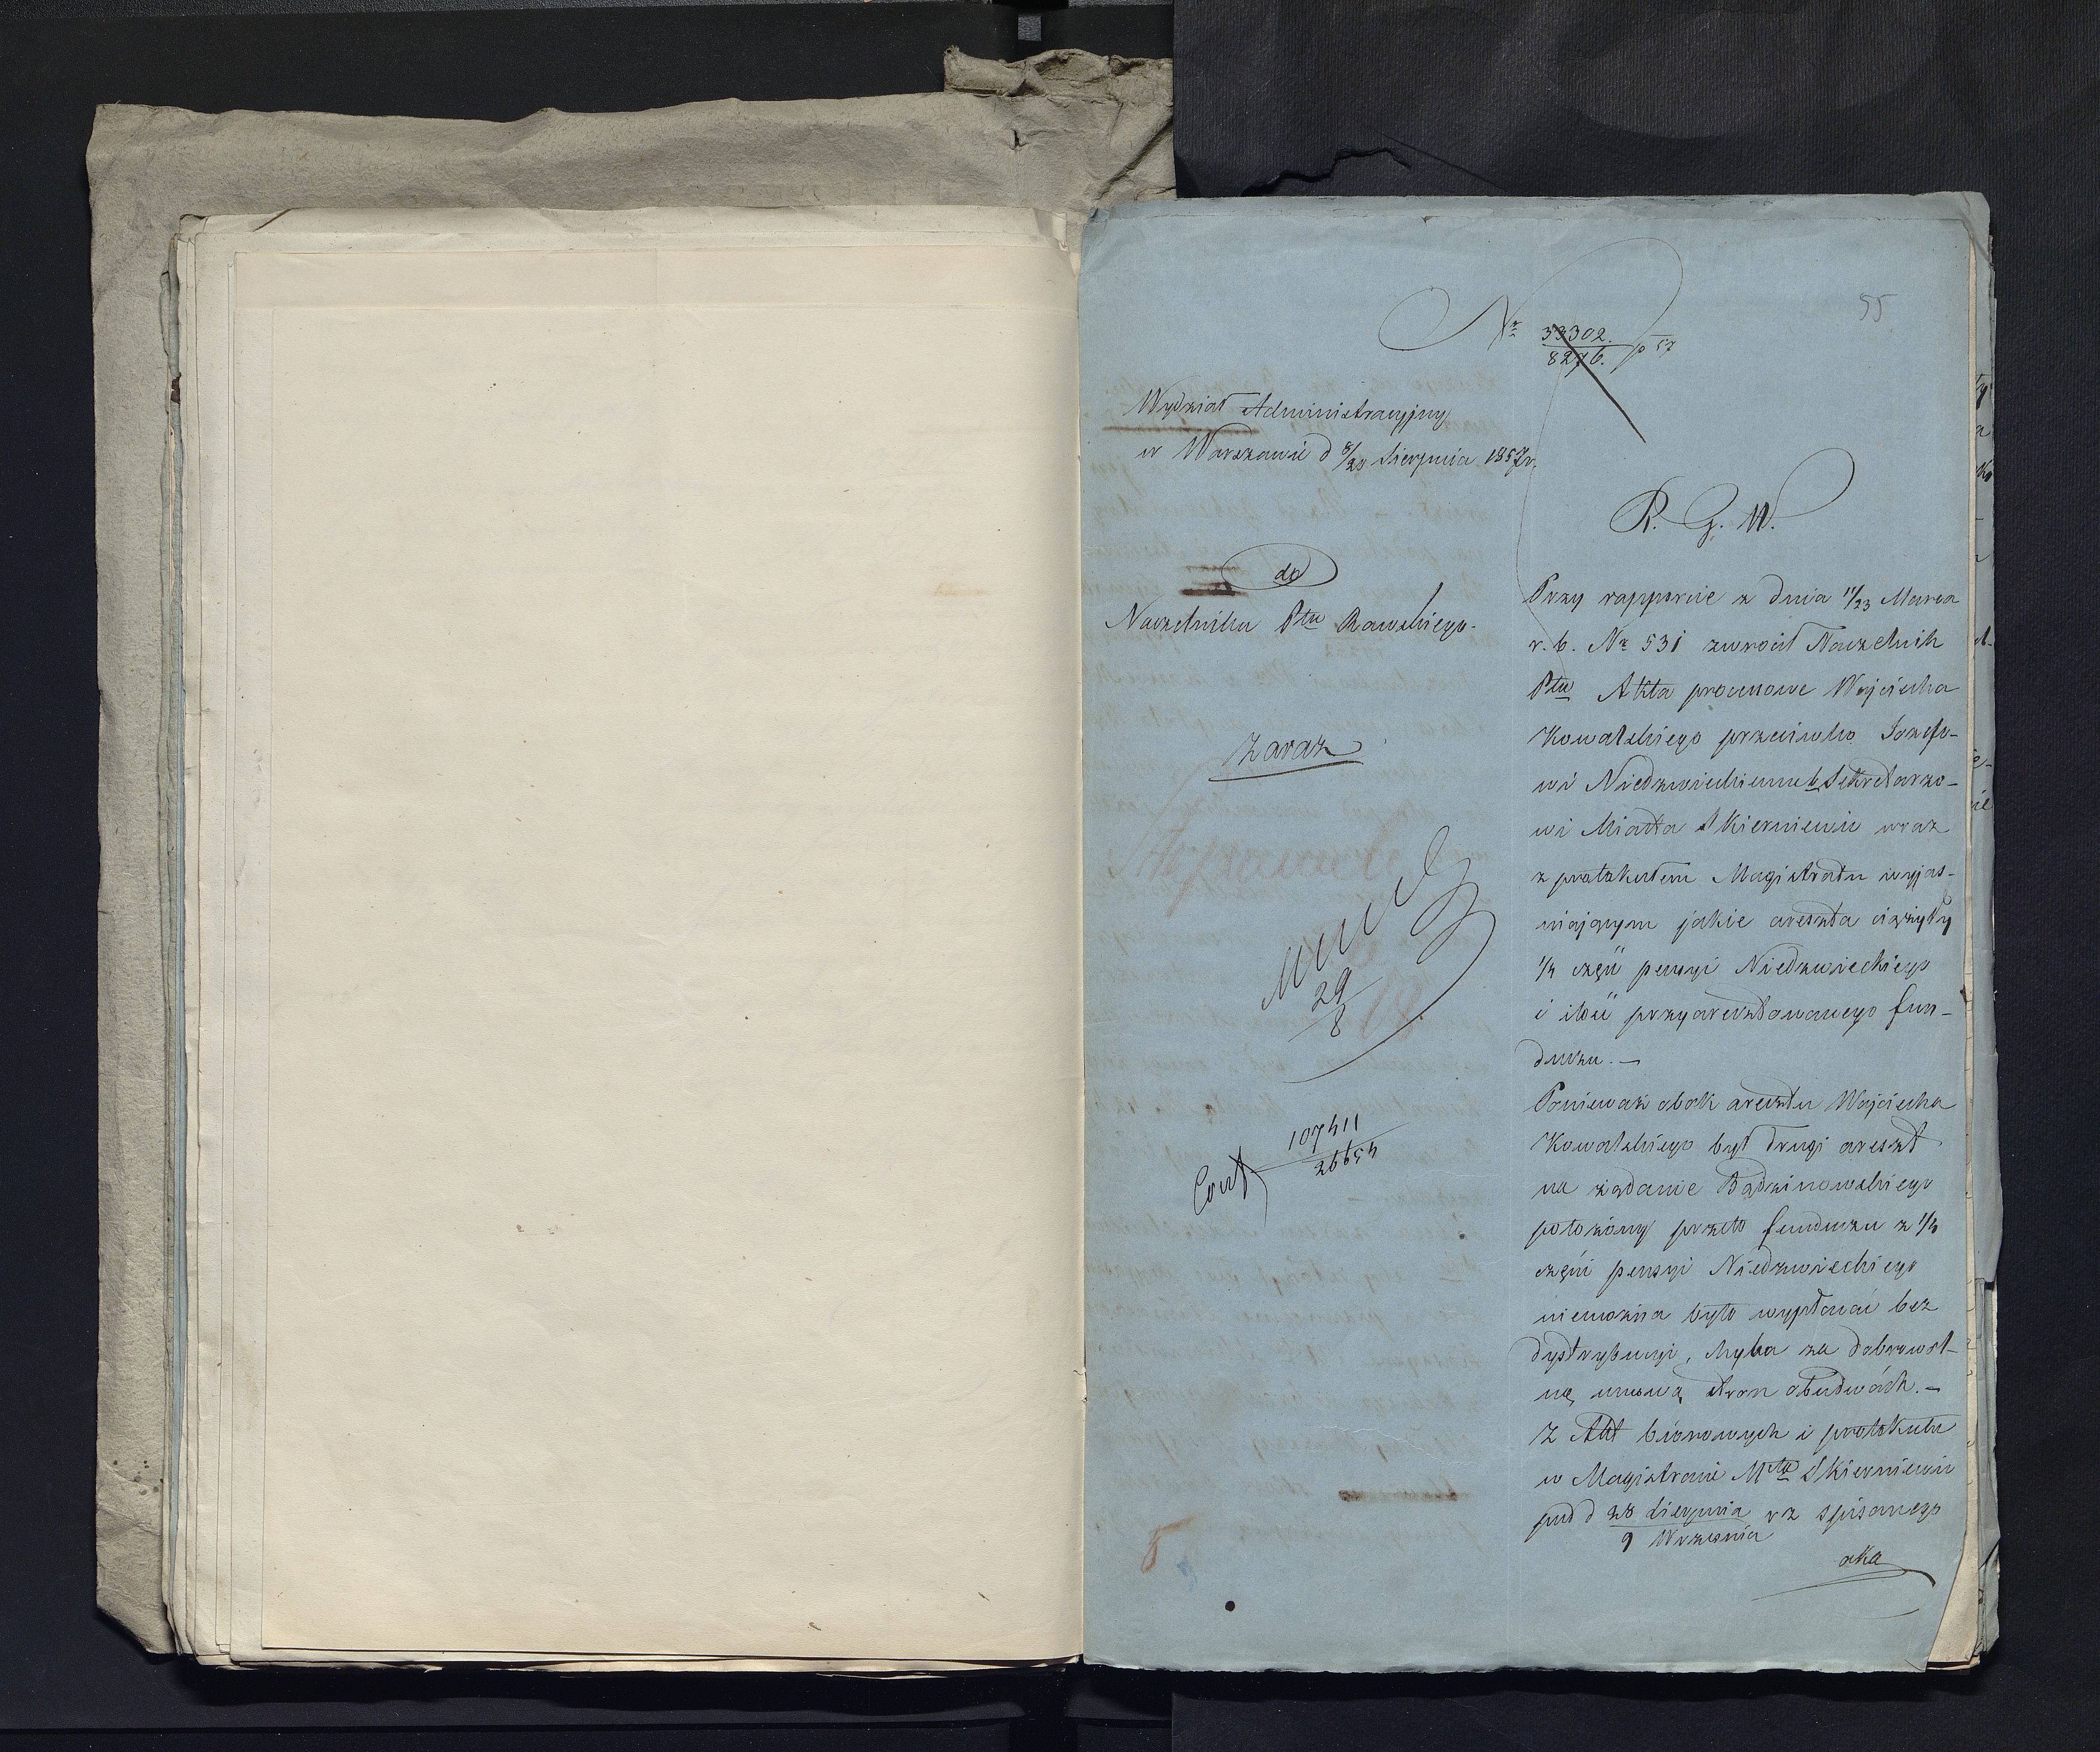 55
Nr 33302. / 8276. p 57
Wydział Administracyjny
w Warszawie d 8/20 Sierpnia 1857 r.
R. G. W.
do
Naczelnika Ptu Rawskiego.
zaraz
29/8
107411
26654
Przy rapporcie z dnia 11/23 Marca
r. b. Nr 531 zwrócił Naczelnik
Ptu Akta processowe Wojciecha
Kowalskiego przeciwko Jozefo-
wi Niedzwieckiemu b. Sekretarzo-
wi Miasta Skierniewic wraz
z protokułem Magistratu wyjas-
niającym jakie areszta ciążyły
częśc pensyi Niedzwieckiego
i ilość przyaresztowanego fun-
duszu. —
Ponieważ obok aresztu Wojciecha
Kowalskiego był drugi areszt
na żądanie Bądzinowskiego
położony przeto funduszu z
części pensyi Niedzwieckiego
niemożna było wypłacać bez
dystrybucyi, chyba za dobrowol-
ną umową stron obudwóch. —
Z Akt biórowych i protokułu
w Magistracie Mta Skierniewic
pod d 28 Sierpnia / 9 Września r z spisanego
oka